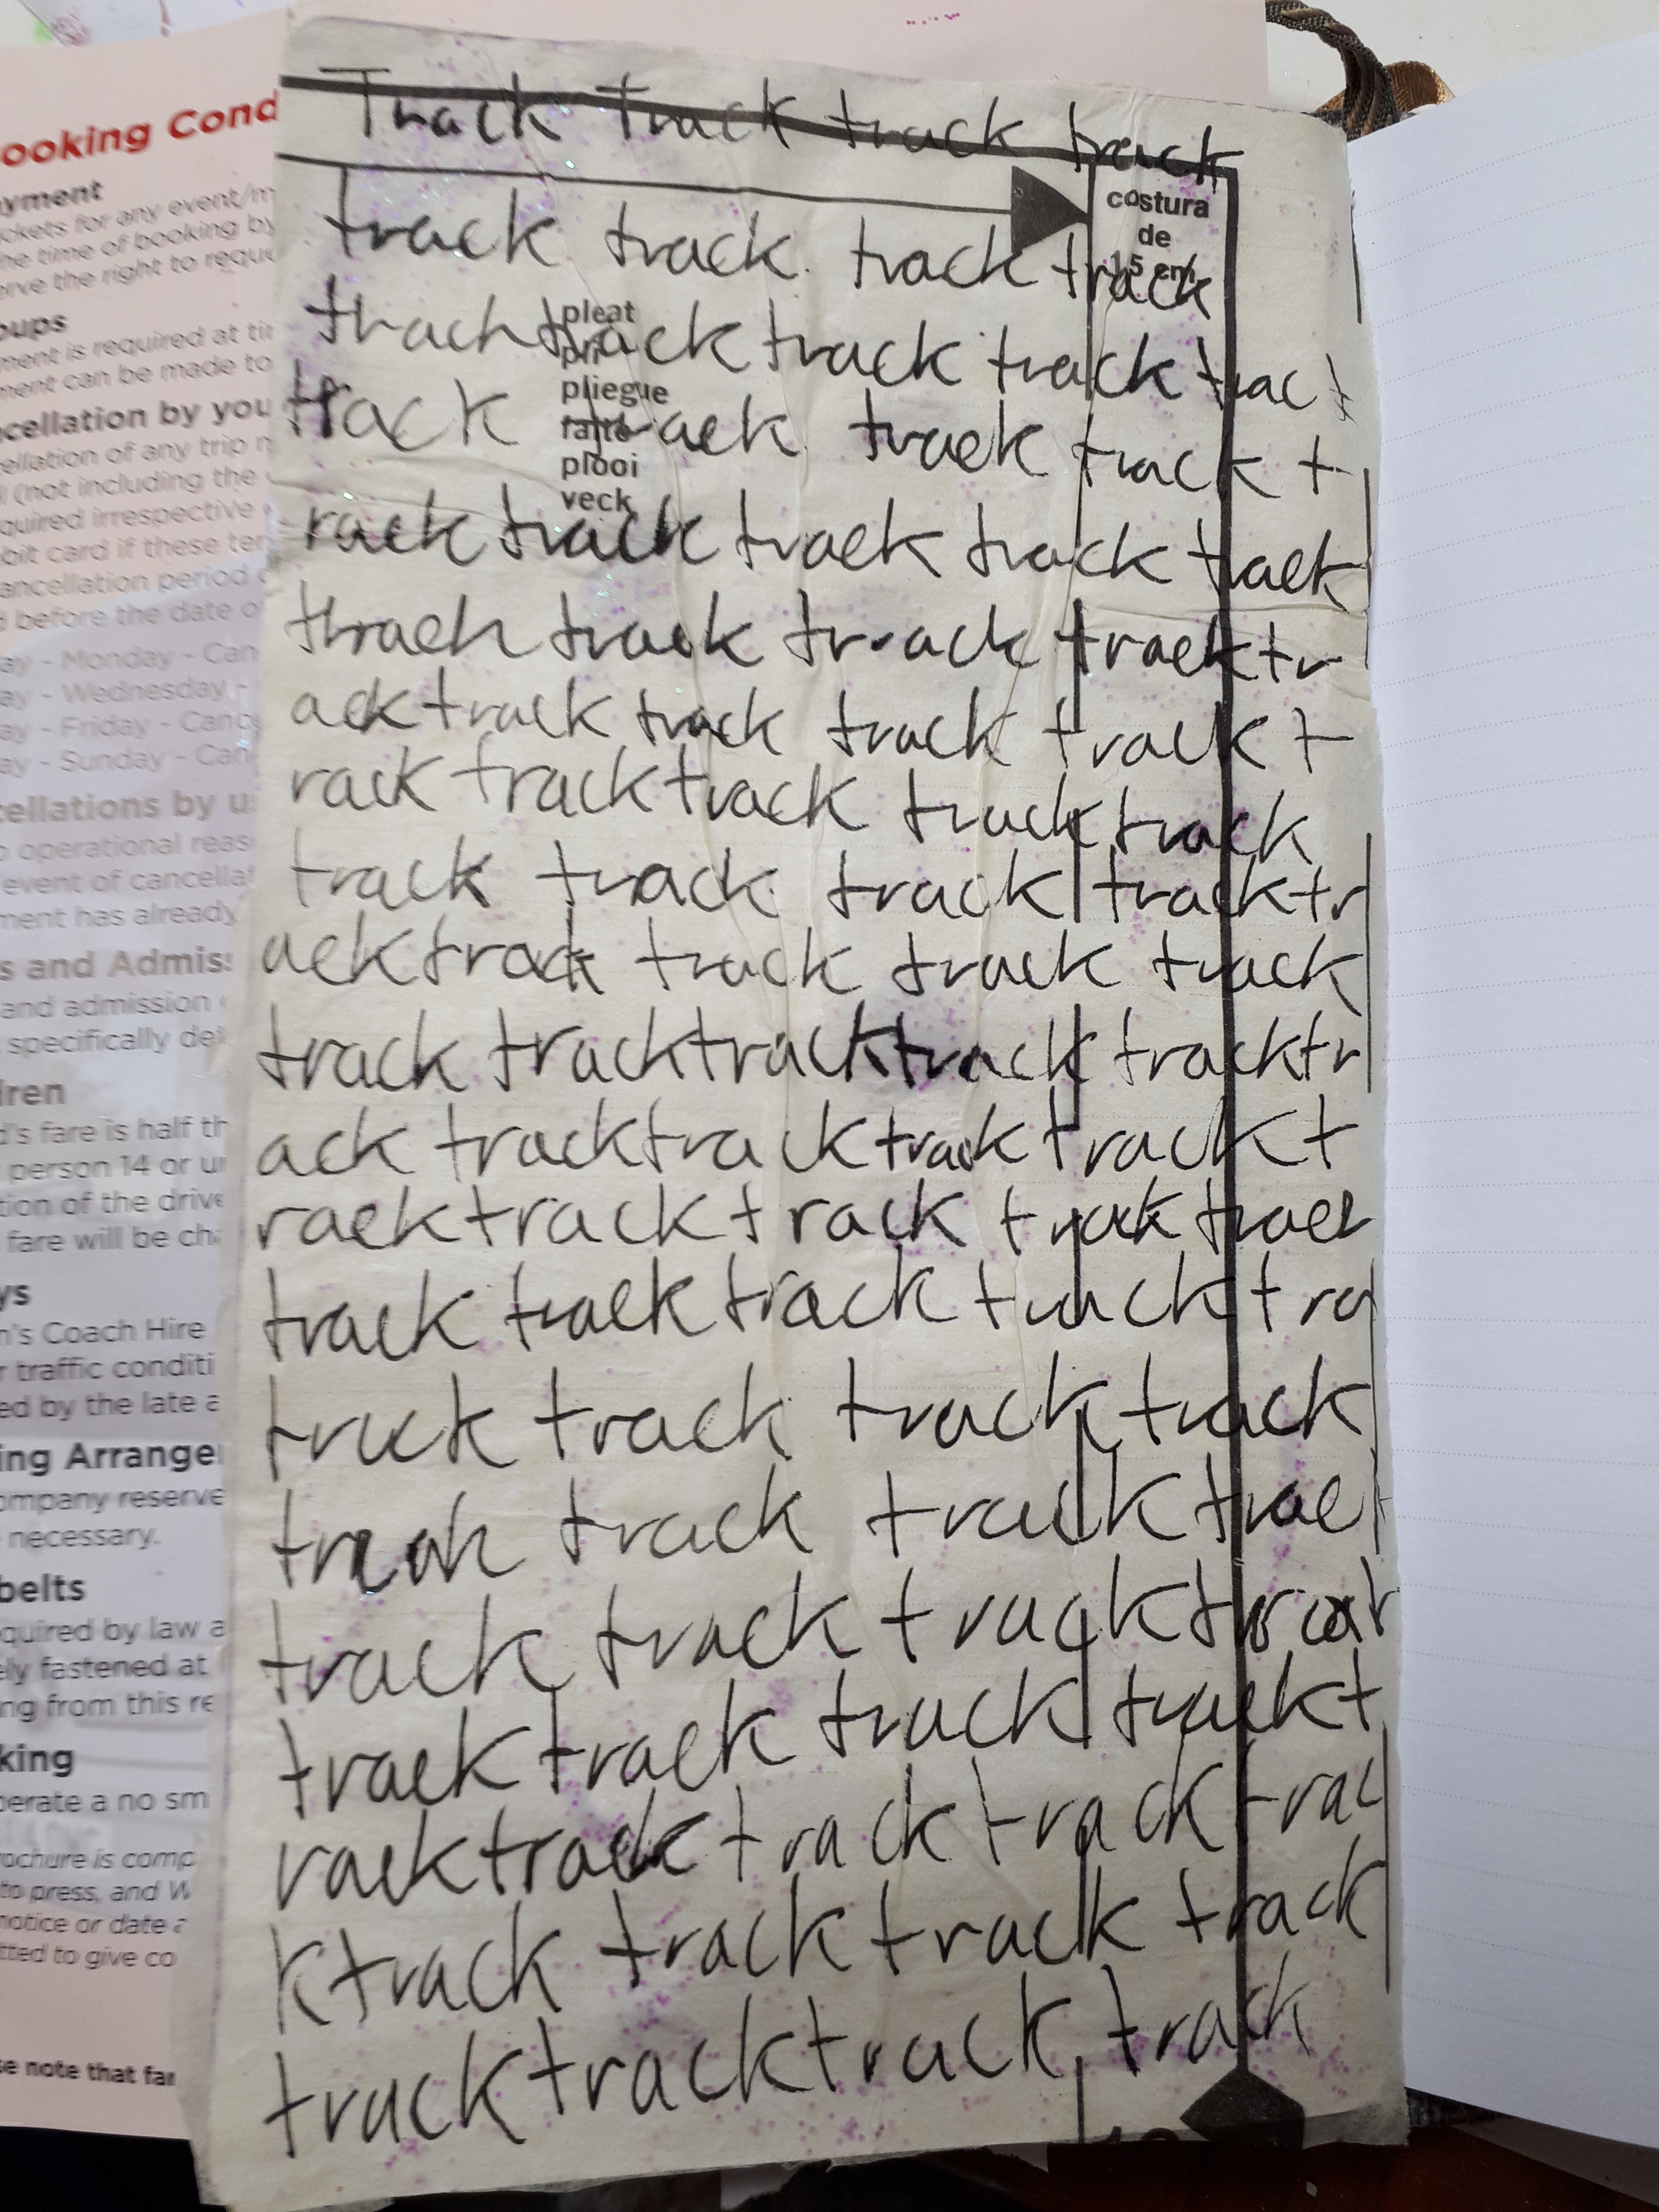 Track Track track track
costura
de
track track. track track
1,5 cm
trach track track track trac
pleat
pli
pliegue
falte
plooi
veck
track track track track t
rack track track track track
trach track track track track tr
ack track track track track t
rack track track track track
track track track track tr
ack track track track track
track track track track track tr
ack track track track track t
rack track track track track
track track track track tra
track track track track
track track track trac
track track track
track track track track t
rack track track track trac
k track track track track
track track track track
ooking Cond
ayment
ickets for any event/m
he time of booking by
erve the right to reque
oups
ment is required at tin
ment can be made to
ncellation by you
ellation of any trip n
(not including the
quired irrespective
bit card if these ter
ancellation period
before the date of
ay - Monday - Can
ay - Wednesday -
ay - Friday - Canc
ay - Sunday - Can
cellations by u
o operational reas
event of cancellat
ment has already
s and Admiss
and admission
specifically det
dren
d's fare is half th
person 14 or u
tion of the drive
fare will be cha
ys
n's Coach Hire
r traffic conditi
ed by the late a
ing Arranger
ompany reserve
necessary.
belts
quired by law a
ely fastened at
ng from this re
king
perate a no sm
ochure is comp
to press, and W
notice or date a
tted to give co
se note that far